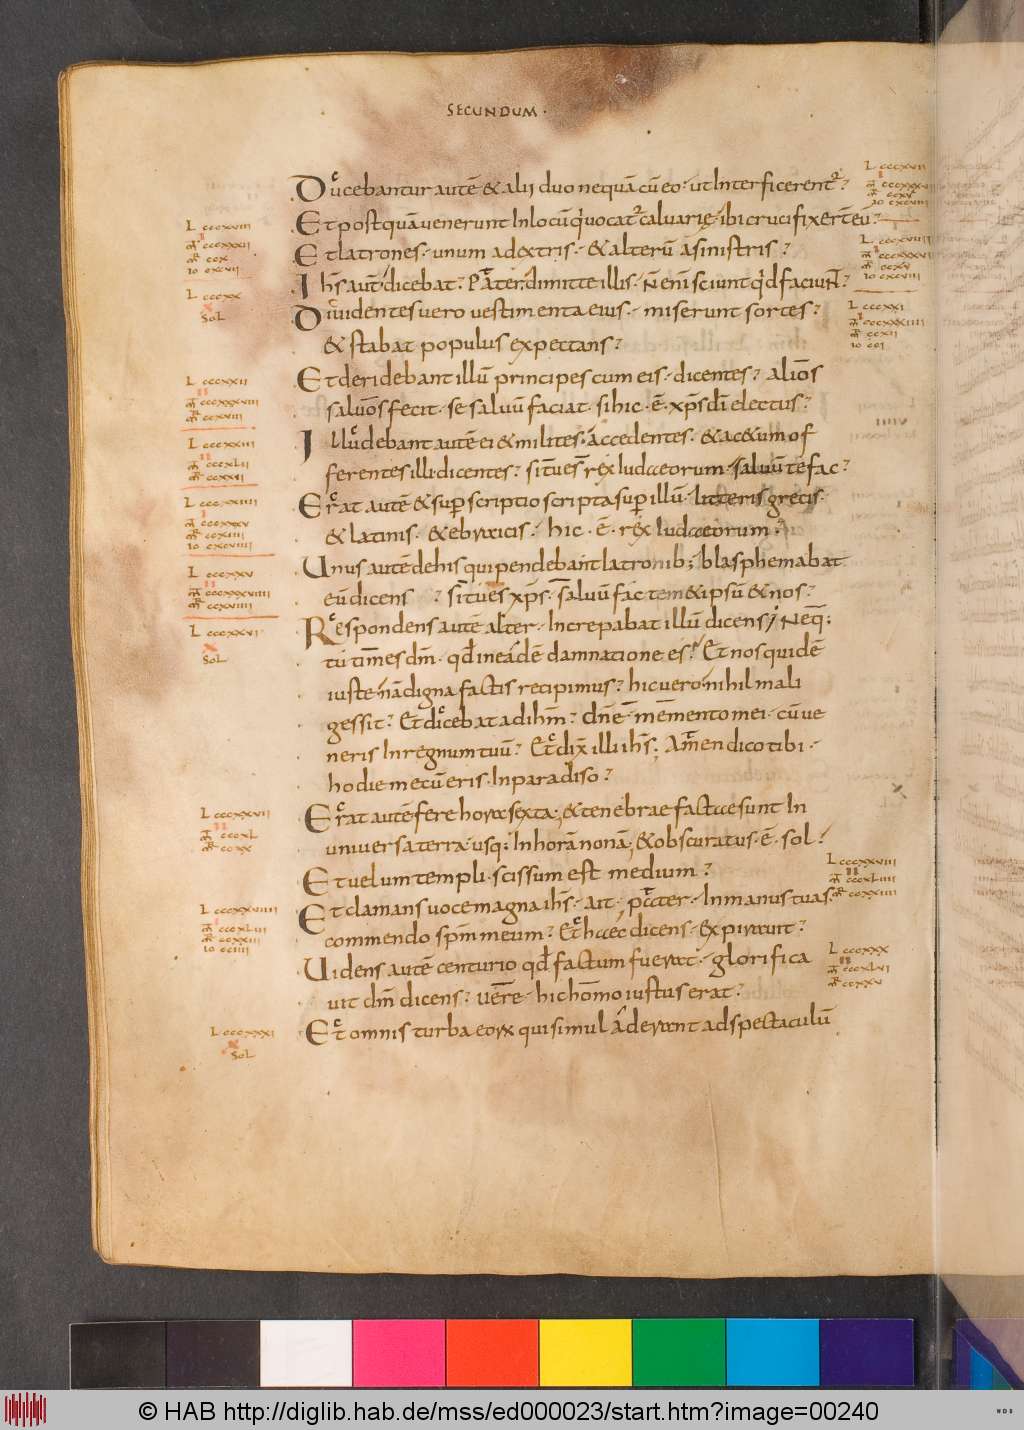 SECUNDUM ·
Ducebantur autē & alii duo nequā cū eo · ut Interficerent ·
Et postquā venerunt In locū q̇ vocat calvarię · ibi crucifixer̄t eū ·
Et latrones · unum adextris · & alterū asinistris ·
Ihs̄ aut̄ dicebat · Pater dimitte illis · Nen̄ī sciunt q̇d faciuNt ·
Dividentes vero vestimenta eius · miserunt sortes ·
& stabat populus expectans ·
Et deridebant illū principes cum eis · dicentes · alios
saluos fecit · se saluū faciat · si hic · ē · xp̄s dī electus ·
Illudebant autē ei & milites · accedentes · & ac&um of
ferentes illi dicentes · si tu es rex Iudæorum · saluū te fac ·
Erat autē & sup scriptio scripta sup illū · litteris grecis ·
& latinis · & ebraicis · hic · ē · rex Iudæorum ·
Unus autē dehis qui pendebant latronib; blasphemabat
eū dicens · si tu es xp̄s · saluū fac tem&ipsū & nos ·
Respondens autē alter · Increpabat illū dicens · Neq;
tū times dm̄ · qd̄ in eadē damnatione es · Et nos quidē
iuste nā digna factis recipimus · hic vero nihil mali
gessit · Et dicebat ad ihm̄ · dn̄e memento mei · cū ve
neris In regnum tuū · Et dix̄ illi ihs̄ · Amen dico tibi ·
hodie mecū eris · In paradiso ·
Erat autē fere hora sexta · & tenebrae factæ sunt In
universa terra usq; In horā nonā · & obscuratus · ē · sol ·
Et uelum templi · scissum est medium ·
Et clamans voce magna ihs̄ · ait · pater · In manus tuas
commendo spm̄ meum · Et hæc dicens · expiravit ·
Videns autē centurio qd̄ factum fuerat · glorifica
vit dm̄ dicens · vere · hic homo iustus erat ·
Et omnis turba eorum qui simul aderant ad spectaculū
L cccxviii
L cccxx
SOL
L cccxxii
L cccxxiii
L cccxxiiii
L cccxxv
L cccxxvi
SOL
L cccxxvii
L cccxxviiii
L cccxxxi
SOL
L cccxvii
L cccxviiii
L cccxxi
L cccxxviii
L cccxxx
© HAB http://diglib.hab.de/mss/ed000023/start.htm?image=00240